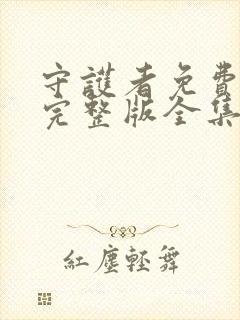 守護者免費
完整版全集
紅塵輕舞